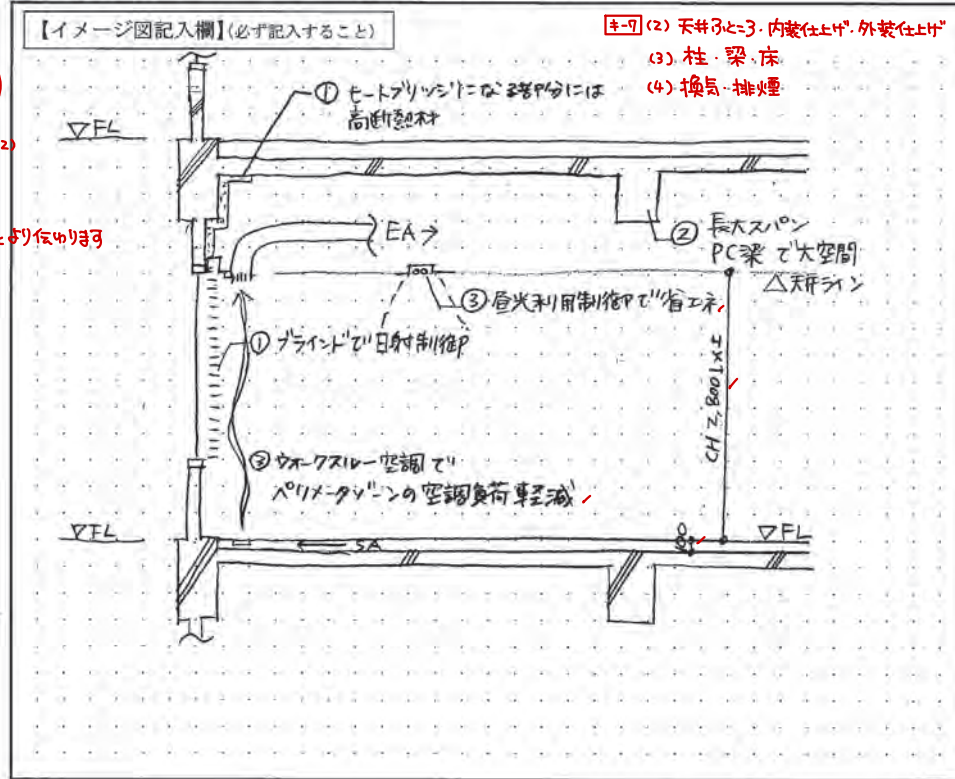 【イメージ図記入欄】(必ず記入すること)
キー7 (2) 天井ふところ・内装仕上げ・外装仕上げ
(3) 柱・梁・床
(4) 換気・排煙
① ヒートブリッジになる部分には
高断熱材
▽FL
2)
より伝わります
EA→
② 長大スパン
PC梁で大空間
△天井ライン
③ 昼光利用制御で省エネ
① ブラインドで日射制御
CH≧2800以上
③ ウォークスルー空調で
ペリメータゾーンの空調負荷軽減
▽FL
SA
100
▽FL